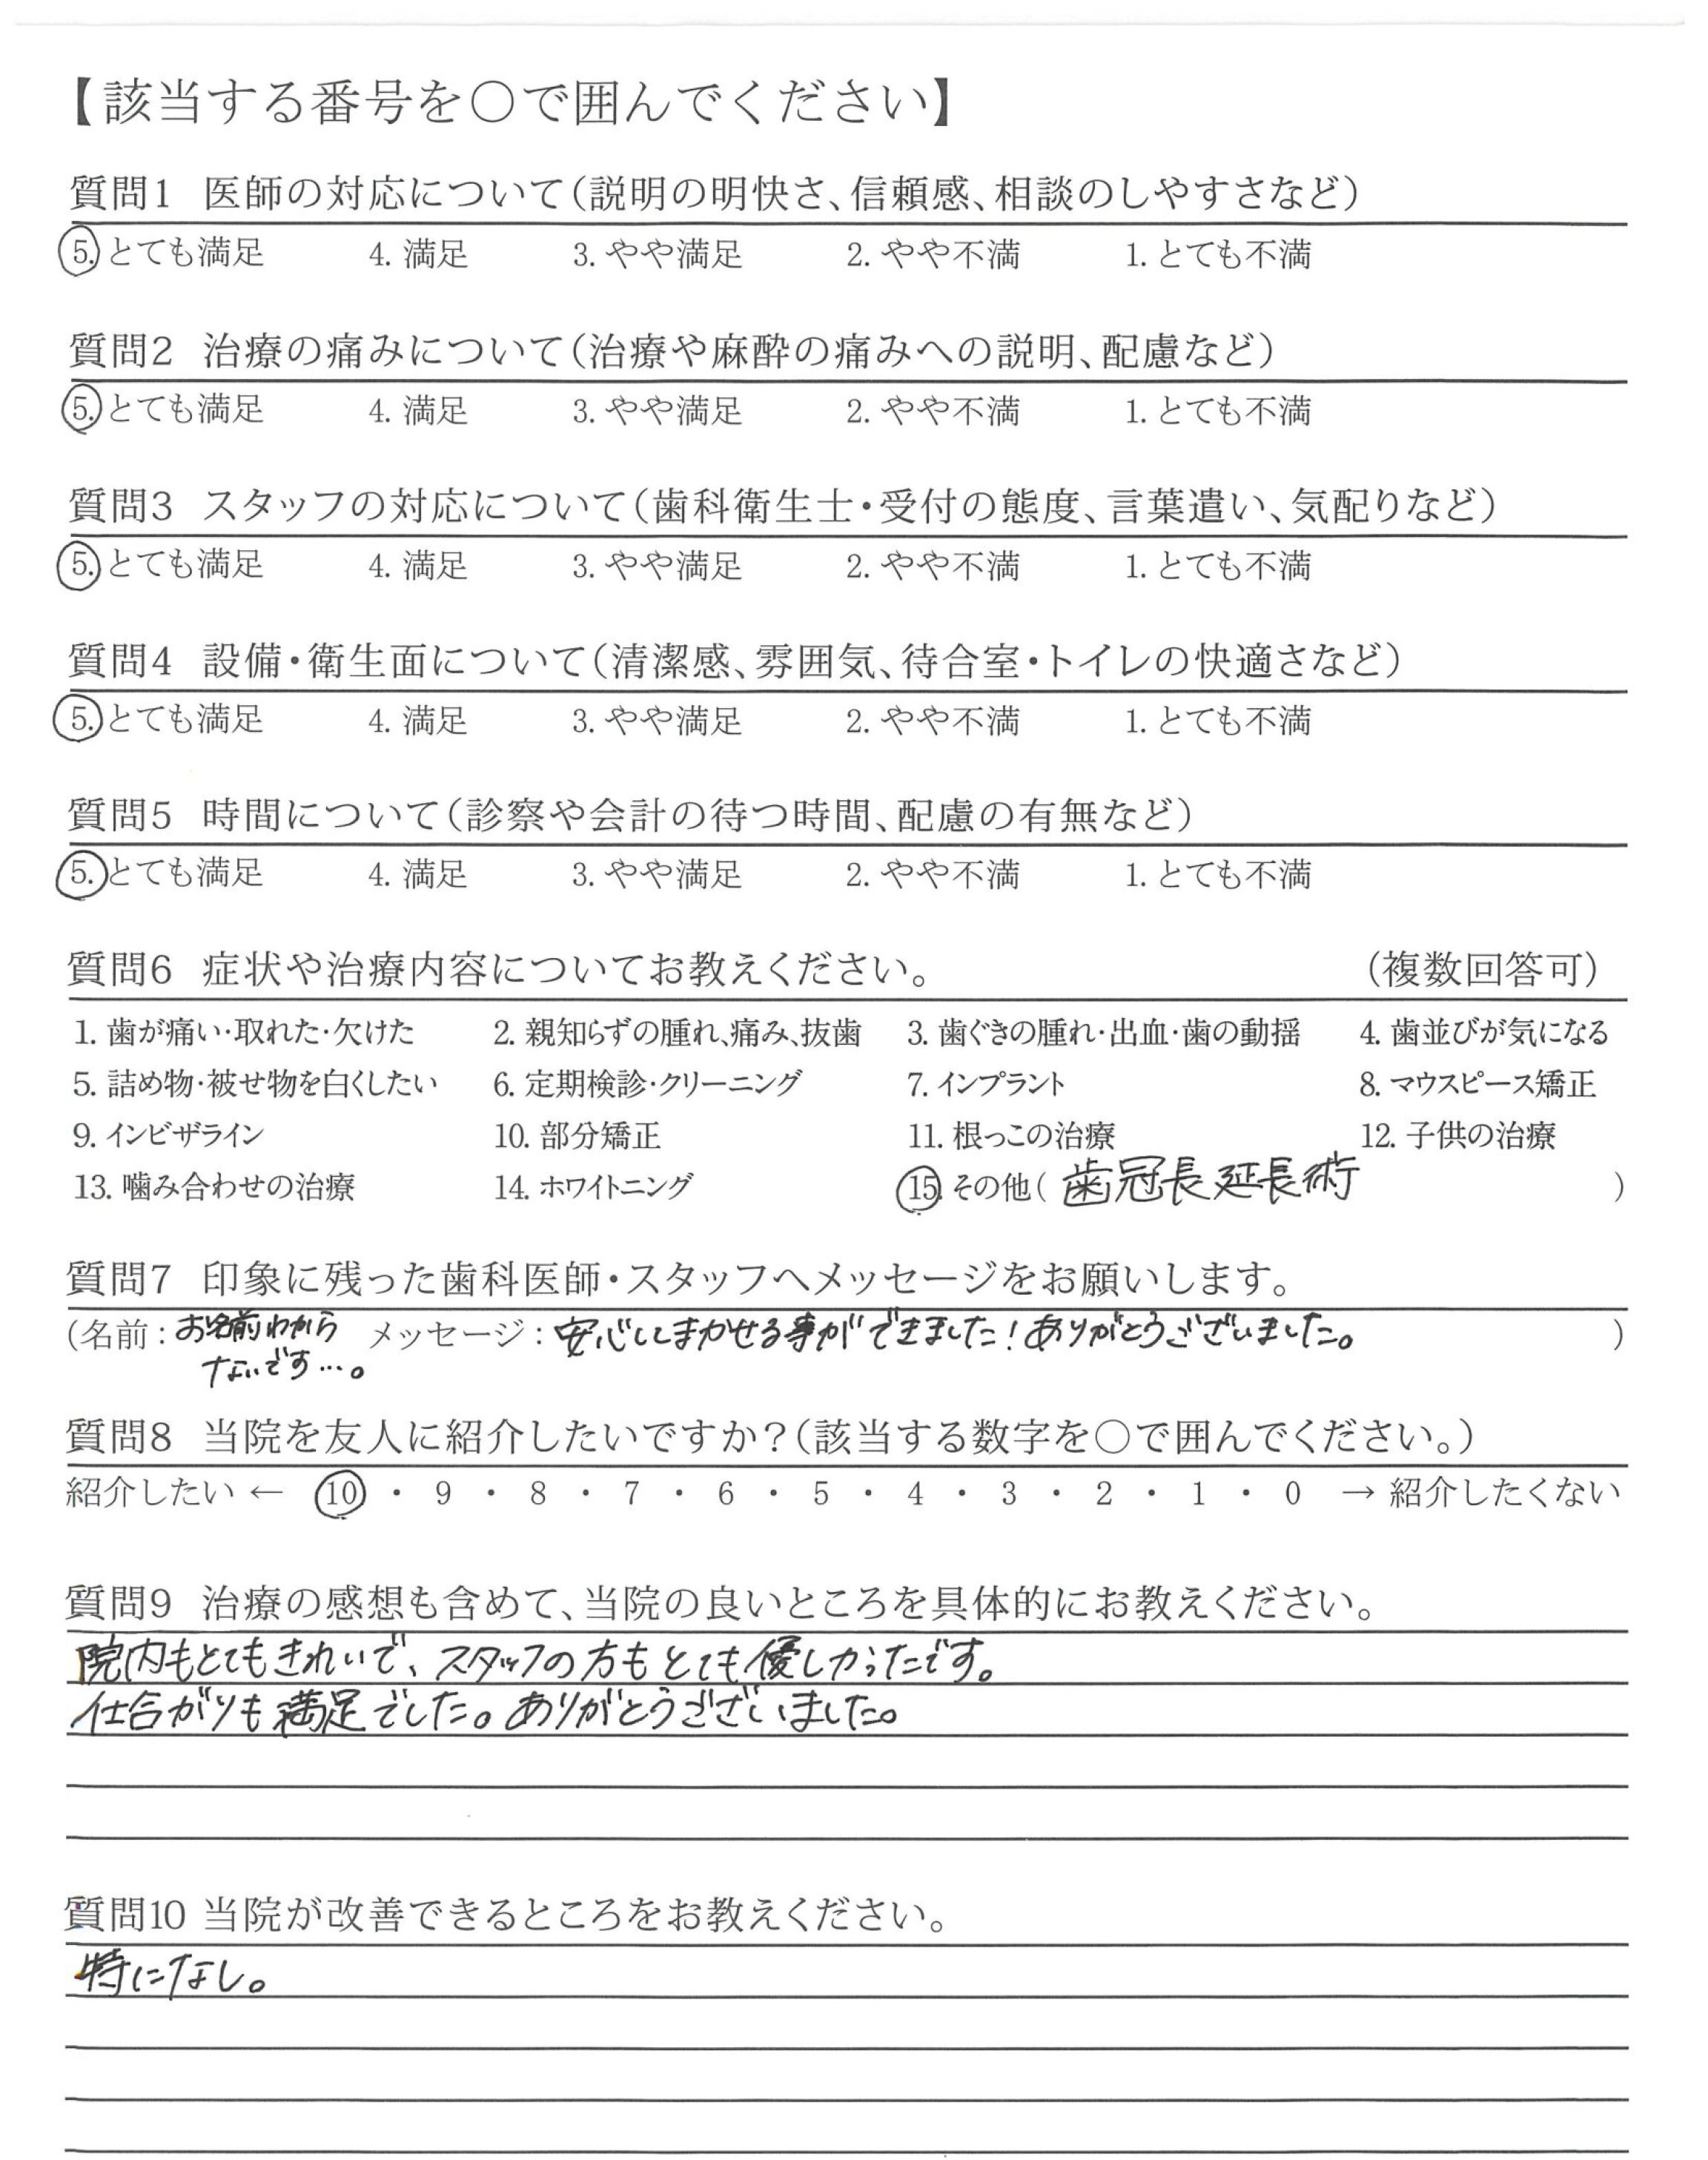 【該当する番号を○で囲んでください】
質問1 医師の対応について(説明の明快さ、信頼感、相談のしやすさなど)
5. とても満足 4. 満足 3. やや満足 2. やや不満 1. とても不満
質問2 治療の痛みについて(治療や麻酔の痛みへの説明、配慮など)
5. とても満足 4. 満足 3. やや満足 2. やや不満 1. とても不満
質問3 スタッフの対応について(歯科衛生士・受付の態度、言葉遣い、気配りなど)
5. とても満足 4. 満足 3. やや満足 2. やや不満 1. とても不満
質問4 設備・衛生面について(清潔感、雰囲気、待合室・トイレの快適さなど)
5. とても満足 4. 満足 3. やや満足 2. やや不満 1. とても不満
質問5 時間について(診察や会計の待つ時間、配慮の有無など)
5. とても満足 4. 満足 3. やや満足 2. やや不満 1. とても不満
質問6 症状や治療内容についてお教えください。 (複数回答可)
1. 歯が痛い・取れた・欠けた 2. 親知らずの腫れ、痛み、抜歯 3. 歯ぐきの腫れ・出血・歯の動揺 4. 歯並びが気になる
5. 詰め物・被せ物を白くしたい 6. 定期検診・クリーニング 7. インプラント 8. マウスピース矯正
9. インビザライン 10. 部分矯正 11. 根っこの治療 12. 子供の治療
13. 噛み合わせの治療 14. ホワイトニング 15. その他( 歯冠長延長術 )
質問7 印象に残った歯科医師・スタッフへメッセージをお願いします。
(名前: お名前わから メッセージ: 安心してまかせる事ができました!ありがとうございました。 )
ないです…。
質問8 当院を友人に紹介したいですか?(該当する数字を○で囲んでください。)
紹介したい ← 10 ・ 9 ・ 8 ・ 7 ・ 6 ・ 5 ・ 4 ・ 3 ・ 2 ・ 1 ・ 0 → 紹介したくない
質問9 治療の感想も含めて、当院の良いところを具体的にお教えください。
院内もとてもきれいで、スタッフの方もとても優しかったです。
仕合がりも満足でした。ありがとうございました。
質問10 当院が改善できるところをお教えください。
特になし。